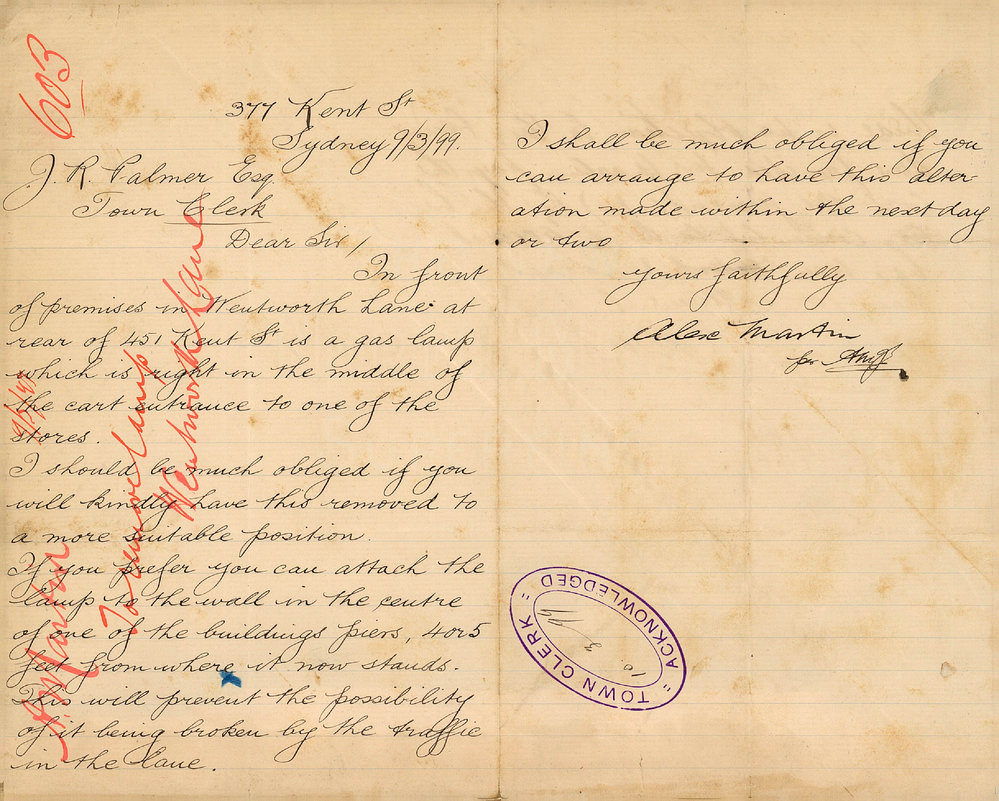 603
377 Kent St
Sydney 9/3/99.
J. R. Palmer Esq.
Town Clerk
Dear Sir,
In front
of premises in Wentworth Lane at
rear of 451 Kent St is a gas lamp
which is right in the middle of
the cart entrance to one of the
stores.
I should be much obliged if you
will kindly have this removed to
a more suitable position.
If you prefer you can attach the
lamp to the wall in the centre
of one of the buildings piers, 4 or 5
feet from where it now stands.
This will prevent the possibility
of it being broken by the traffic
in the lane.
A. Martin
To remove lamp
Wentworth Lane
I shall be much obliged if you
can arrange to have this alter-
ation made within the next day
or two
Yours faithfully
Alex Martin
per
"TOWN CLERK"
10 3 99
ACKNOWLEDGED